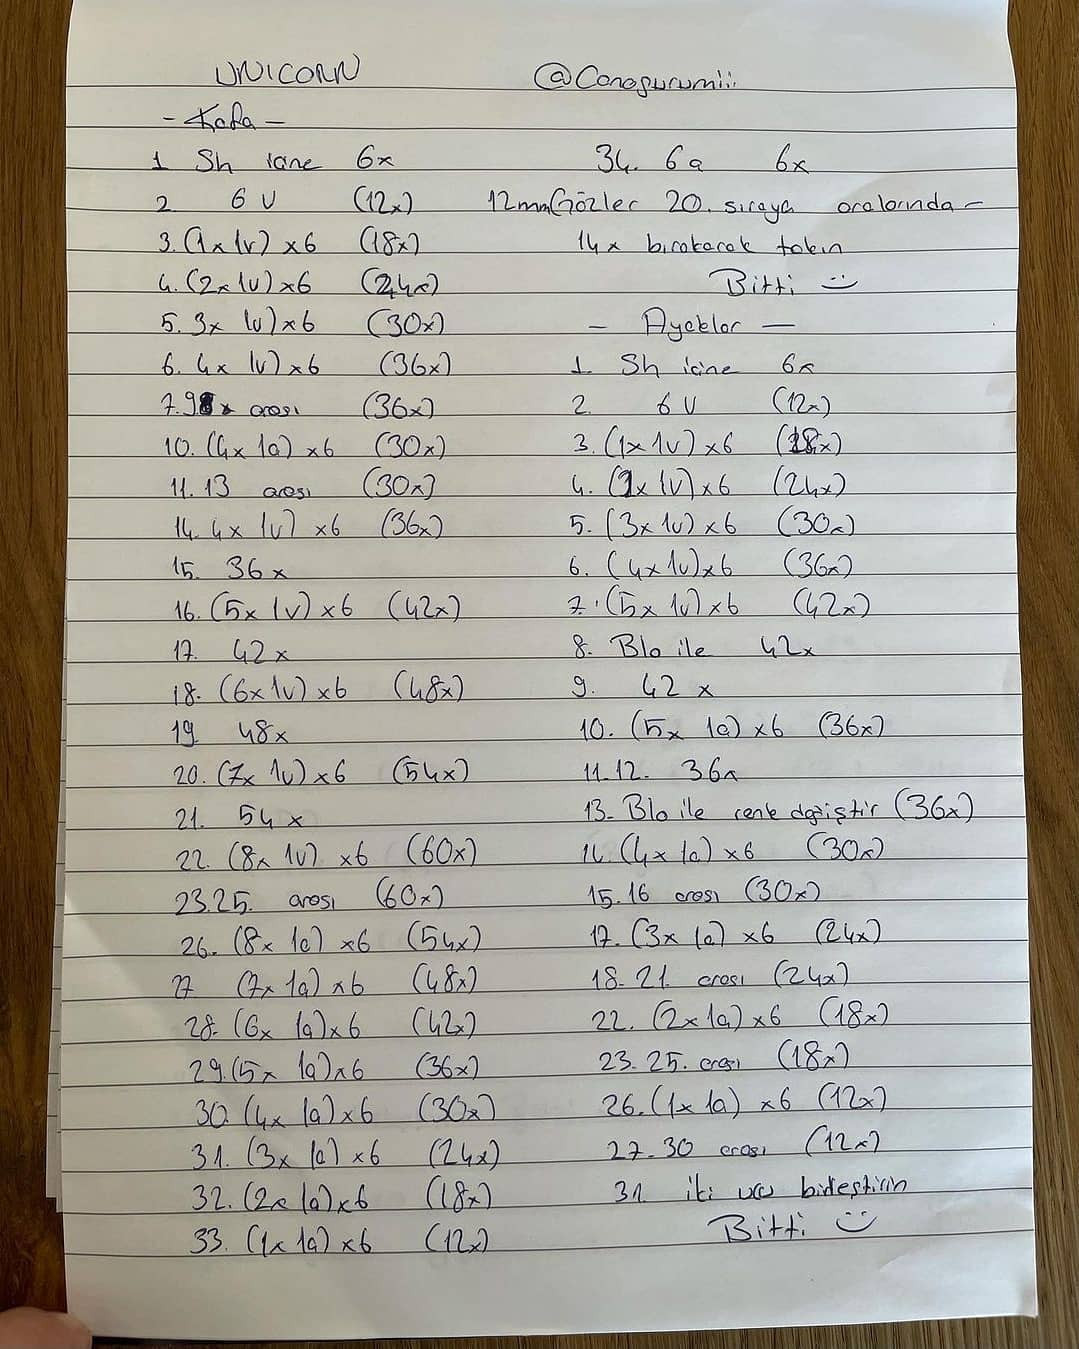 UNICORN
@Canogurumii
- Kafa -
1 Sh icine 6x
2. 6 V (12x)
3. (1x 1v) x6 (18x)
4. (2x 1v) x6 (24x)
5. 3x 1v) x6 (30x)
6. 4x 1v) x6 (36x)
7.9 x arası (36x)
10. (4x 1a) x6 (30x)
11. 13 arası (30x)
14. 4x 1v) x6 (36x)
15. 36x
16. (5x 1v) x6 (42x)
17. 42x
18. (6x 1v) x6 (48x)
19. 48x
20. (7x 1v) x6 (54x)
21. 54x
22. (8x 1v) x6 (60x)
23.25. arası (60x)
26. (8x 1a) x6 (54x)
27 (7x 1a) x6 (48x)
28. (6x 1a) x6 (42x)
29. (5x 1a) x6 (36x)
30. (4x 1a) x6 (30x)
31. (3x 1a) x6 (24x)
32. (2x 1a) x6 (18x)
33. (1x 1a) x6 (12x)
34. 6a 6x
12mm Gözler 20. sıraya aralarında -
14x bırakarak takın
Bitti :)
- Ayaklar -
1 Sh icine 6x
2. 6 V (12x)
3. (1x 1v) x6 (18x)
4. (2x 1v) x6 (24x)
5. (3x 1v) x6 (30x)
6. (4x 1v) x6 (36x)
7. (5x 1v) x6 (42x)
8. Blo ile 42x
9. 42x
10. (5x 1a) x6 (36x)
11.12. 36x
13. Blo ile renk değiştir (36x)
14. (4x 1a) x6 (30x)
15.16 arası (30x)
17. (3x 1a) x6 (24x)
18. 21. arası (24x)
22. (2x 1a) x6 (18x)
23. 25. arası (18x)
26. (1x 1a) x6 (12x)
27-30 arası (12x)
31 iki ucu birleştirin
Bitti :)